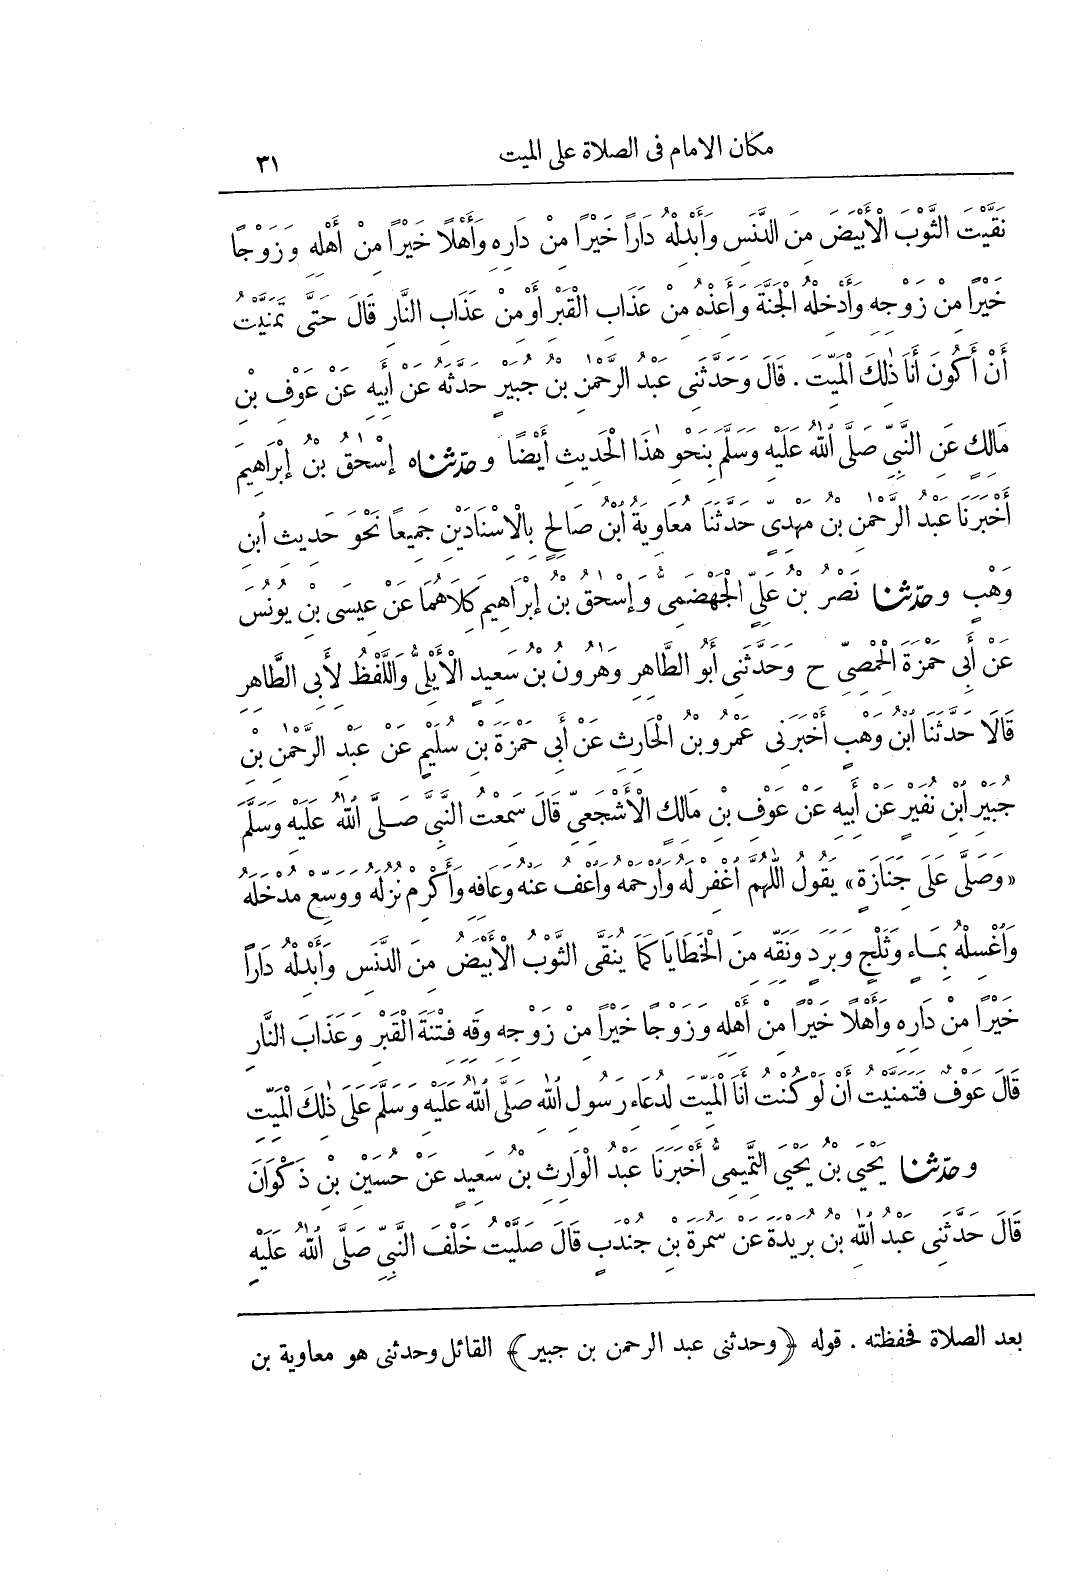 مكان الامام فى الصلاة على الميت ٣١
نَقَّيْتَ الثَّوْبَ الْأَبْيَضَ مِنَ الدَّنَسِ وَأَبْدِلْهُ دَارًا خَيْرًا مِنْ دَارِهِ وَأَهْلًا خَيْرًا مِنْ أَهْلِهِ وَزَوْجًا
خَيْرًا مِنْ زَوْجِهِ وَأَدْخِلْهُ الْجَنَّةَ وَأَعِذْهُ مِنْ عَذَابِ الْقَبْرِ أَوْ مِنْ عَذَابِ النَّارِ قَالَ حَتَّى تَمَنَّيْتُ
أَنْ أَكُونَ أَنَا ذٰلِكَ الْمَيِّتَ . قَالَ وَحَدَّثَنِى عَبْدُ الرَّحْمٰنِ بْنُ جُبَيْرٍ حَدَّثَهُ عَنْ أَبِيهِ عَنْ عَوْفِ بْنِ
مَالِكٍ عَنِ النَّبِيِّ صَلَّى اللّٰهُ عَلَيْهِ وَسَلَّمَ بِنَحْوِ هٰذَا الْحَدِيثِ أَيْضًا وحَدَّثَنَاه إِسْحٰقُ بْنُ إِبْرَاهِيمَ
أَخْبَرَنَا عَبْدُ الرَّحْمٰنِ بْنُ مَهْدِيٍّ حَدَّثَنَا مُعَاوِيَةُ ابْنُ صَالِحٍ بِالْإِسْنَادَيْنِ جَمِيعًا نَحْوَ حَدِيثِ ابْنِ
وَهْبٍ وحَدَّثَنَا نَصْرُ بْنُ عَلِيٍّ الْجَهْضَمِىُّ وَإِسْحٰقُ بْنُ إِبْرَاهِيمَ كِلَاهُمَا عَنْ عِيسَى بْنِ يُونُسَ
عَنْ أَبِى حَمْزَةَ الْحِمْصِىِّ ح وَحَدَّثَنِى أَبُو الطَّاهِرِ وَهٰرُونُ بْنُ سَعِيدٍ الْأَيْلِىُّ وَاللَّفْظُ لِأَبِى الطَّاهِرِ
قَالَا حَدَّثَنَا ابْنُ وَهْبٍ أَخْبَرَنِى عَمْرُو بْنُ الْحَارِثِ عَنْ أَبِى حَمْزَةَ بْنِ سُلَيْمٍ عَنْ عَبْدِ الرَّحْمٰنِ بْنِ
جُبَيْرِ ابْنِ نُفَيْرٍ عَنْ أَبِيهِ عَنْ عَوْفِ بْنِ مَالِكٍ الْأَشْجَعِىِّ قَالَ سَمِعْتُ النَّبِىَّ صَلَّى اللّٰهُ عَلَيْهِ وَسَلَّمَ
«وَصَلَّى عَلَى جَنَازَةٍ» يَقُولُ اللّٰهُمَّ اغْفِرْ لَهُ وَارْحَمْهُ وَاعْفُ عَنْهُ وَعَافِهِ وَأَكْرِمْ نُزُلَهُ وَوَسِّعْ مُدْخَلَهُ
وَاغْسِلْهُ بِمَاءٍ وَثَلْجٍ وَبَرَدٍ وَنَقِّهِ مِنَ الْخَطَايَا كَمَا يُنَقَّى الثَّوْبُ الْأَبْيَضُ مِنَ الدَّنَسِ وَأَبْدِلْهُ دَارًا
خَيْرًا مِنْ دَارِهِ وَأَهْلًا خَيْرًا مِنْ أَهْلِهِ وَزَوْجًا خَيْرًا مِنْ زَوْجِهِ وَقِهِ فِتْنَةَ الْقَبْرِ وَعَذَابَ النَّارِ
قَالَ عَوْفٌ فَتَمَنَّيْتُ أَنْ لَوْ كُنْتُ أَنَا الْمَيِّتَ لِدُعَاءِ رَسُولِ اللّٰهِ صَلَّى اللّٰهُ عَلَيْهِ وَسَلَّمَ عَلَى ذٰلِكَ الْمَيِّتِ
وحَدَّثَنَا يَحْيَى بْنُ يَحْيَى التَّمِيمِىُّ أَخْبَرَنَا عَبْدُ الْوَارِثِ بْنُ سَعِيدٍ عَنْ حُسَيْنِ بْنِ ذَكْوَانَ
قَالَ حَدَّثَنِى عَبْدُ اللّٰهِ بْنُ بُرَيْدَةَ عَنْ سَمُرَةَ بْنِ جُنْدَبٍ قَالَ صَلَّيْتُ خَلْفَ النَّبِىِّ صَلَّى اللّٰهُ عَلَيْهِ
بعد الصلاة فحفظته . قوله ﴿وحدثنى عبد الرحمن بن جبير﴾ القائل وحدثنى هو معاوية بن